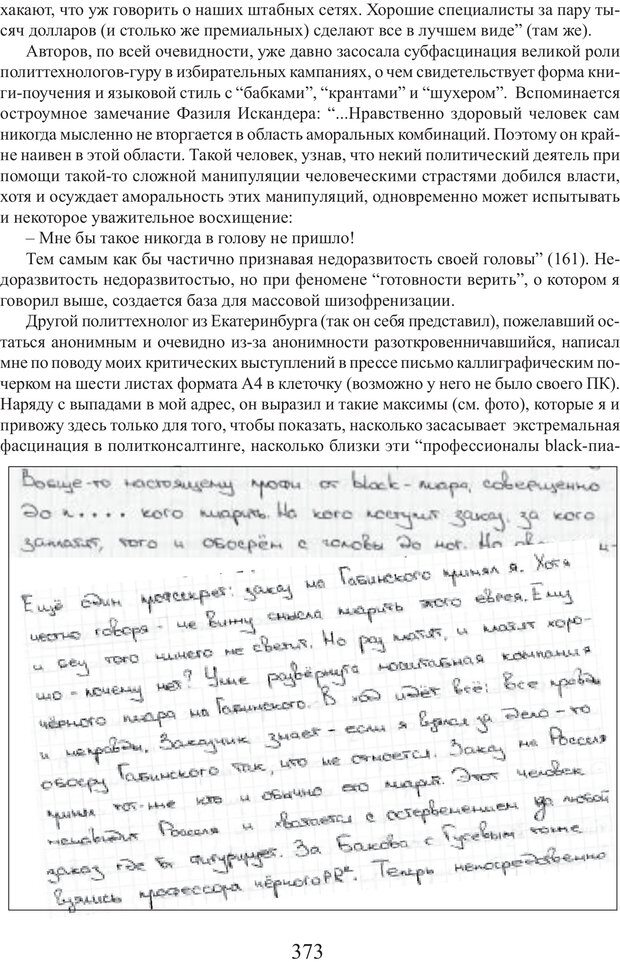 хакают, что уж говорить о наших штабных сетях. Хорошие специалисты за пару ты-
сяч долларов (и столько же премиальных) сделают все в лучшем виде” (там же).
Авторов, по всей очевидности, уже давно засосала субфасцинация великой роли
политтехнологов-гуру в избирательных кампаниях, о чем свидетельствует форма кни-
ги-поучения и языковой стиль с “бабками”, “крантами” и “шухером”. Вспоминается
остроумное замечание Фазиля Искандера: “...Нравственно здоровый человек сам
никогда мысленно не вторгается в область аморальных комбинаций. Поэтому он край-
не наивен в этой области. Такой человек, узнав, что некий политический деятель при
помощи такой-то сложной манипуляции человеческими страстями добился власти,
хотя и осуждает аморальность этих манипуляций, одновременно может испытывать
и некоторое уважительное восхищение:
– Мне бы такое никогда в голову не пришло!
Тем самым как бы частично признавая недоразвитость своей головы” (161). Не-
доразвитость недоразвитостью, но при феномене “готовности верить”, о котором я
говорил выше, создается база для массовой шизофренизации.
Другой политтехнолог из Екатеринбурга (так он себя представил), пожелавший ос-
таться анонимным и очевидно из-за анонимности разоткровенничавшийся, написал
мне по поводу моих критических выступлений в прессе письмо каллиграфическим по-
черком на шести листах формата А4 в клеточку (возможно у него не было своего ПК).
Наряду с выпадами в мой адрес, он выразил и такие максимы (см. фото), которые я и
привожу здесь только для того, чтобы показать, насколько засасывает экстремальная
фасцинация в политконсалтинге, насколько близки эти “профессионалы black-пиа-
Вообще-то настоящему профи от black-пиара, совершенно
до п.... кого пиарить. На кого поступит заказ, за кого
заплатят, того и обосрём с головы до ног. Но
Ещё один профсекрет: заказ на Габинского принял я. Хотя
честно говоря - не вижу смысла пиарить этого еврея. Ему
и без того ничего не светит. Но раз платят, и платят хоро-
шо - почему нет? Уже развёрнута масштабная кампания
чёрного пиара на Габинского. В ход идёт всё: все правды
и неправды. Заказчик знает - если я взялся за дело - то
обосру Габинского так, что не отмоется. Заказ на Росселя
принял тот-же кто и обычно его пиарит. Этот человек
ненавидит Росселя и хватается с остервенением за любой
заказ где тот фигурирует. За Бакова с Гусевым тоже
взялись профессора чёрного PR. Теперь непосредственно
373